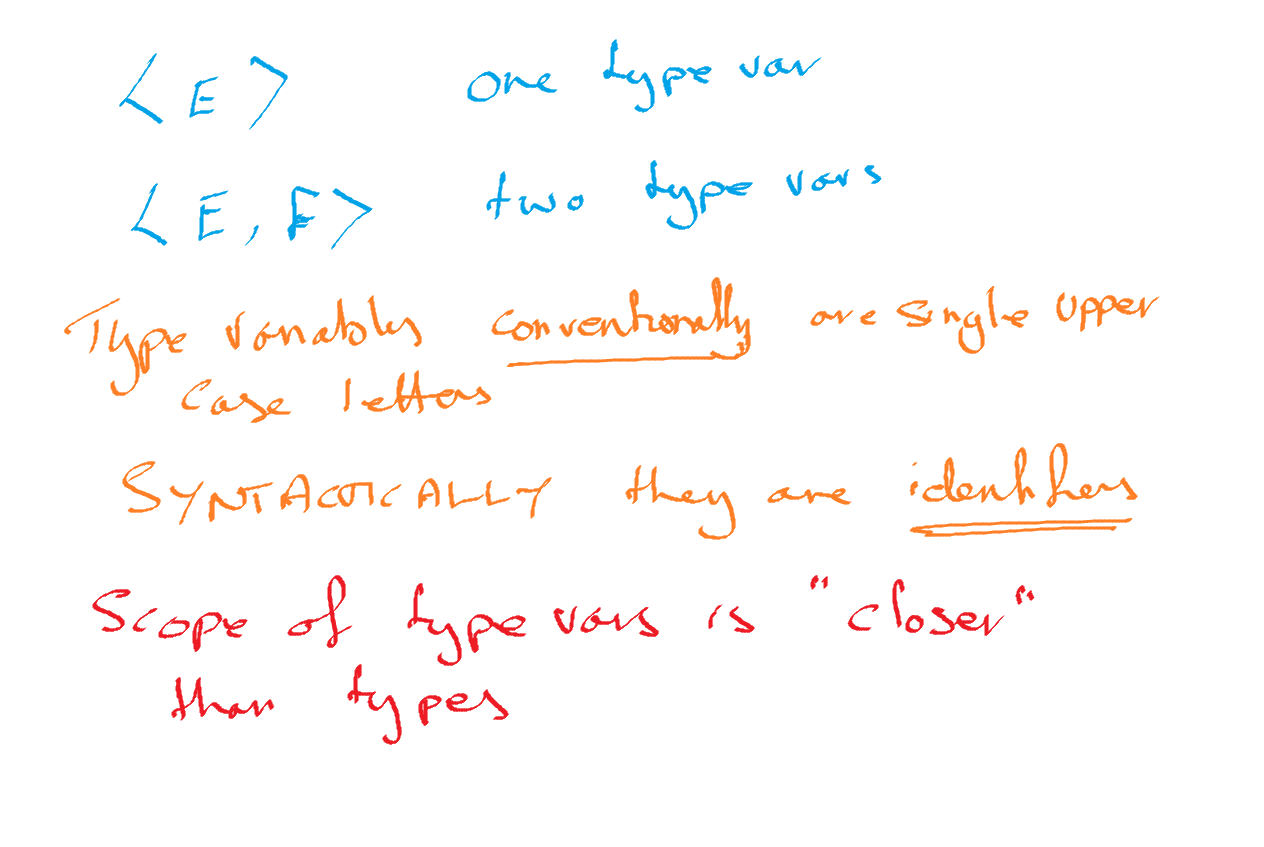 <E> one type var
<E, F> two type vars
Type variables conventionally are single upper
case letters
SYNTACTICALLY they are identifiers
Scope of type vars is "closer"
than types